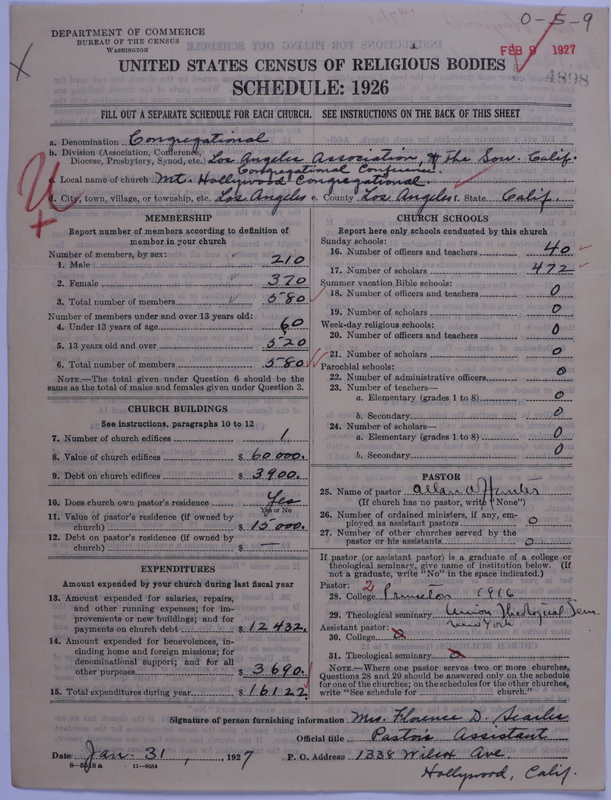 0-5-9
DEPARTMENT OF COMMERCE
BUREAU OF THE CENSUS
WASHINGTON
FEB 9 1927
4898
UNITED STATES CENSUS OF RELIGIOUS BODIES
SCHEDULE: 1926
FILL OUT A SEPARATE SCHEDULE FOR EACH CHURCH. SEE INSTRUCTIONS ON THE BACK OF THIS SHEET
a. Denomination Congregational
b. Division (Association, Conference,
Diocese, Presbytery, Synod, etc.) Los Angeles Association, & The Sou. Calif.
Congregational Conference.
c. Local name of church Mt. Hollywood Congregational.
d. City, town, village, or township, etc. Los Angeles e. County Los Angeles f. State Calif.
MEMBERSHIP
Report number of members according to definition of
member in your church
Number of members, by sex:
1. Male 210
2. Female 370
3. Total number of members 580
Number of members under and over 13 years old:
4. Under 13 years of age 60
5. 13 years old and over 520
6. Total number of members 580
NOTE.—The total given under Question 6 should be the
same as the total of males and females given under Question 3.
CHURCH BUILDINGS
See instructions, paragraphs 10 to 12
7. Number of church edifices 1
8. Value of church edifices $ 60,000.
9. Debt on church edifices $ 3900.
10. Does church own pastor's residence Yes
Yes or No
11. Value of pastor's residence (if owned by
church) $ 15,000.
12. Debt on pastor's residence (if owned by
church) $ —
EXPENDITURES
Amount expended by your church during last fiscal year
13. Amount expended for salaries, repairs,
and other running expenses; for im-
provements or new buildings; and for
payments on church debt $ 12432.
14. Amount expended for benevolences, in-
cluding home and foreign missions; for
denominational support; and for all
other purposes $ 3690.
15. Total expenditures during year $ 16122
CHURCH SCHOOLS
Report here only schools conducted by this church
Sunday schools:
16. Number of officers and teachers 40
17. Number of scholars 472
Summer vacation Bible schools:
18. Number of officers and teachers 0
19. Number of scholars 0
Week-day religious schools:
20. Number of officers and teachers 0
21. Number of scholars 0
Parochial schools:
22. Number of administrative officers 0
23. Number of teachers—
a. Elementary (grades 1 to 8) 0
b. Secondary 0
24. Number of scholars—
a. Elementary (grades 1 to 8) 0
b. Secondary 0
PASTOR
25. Name of pastor Allan A Hunter
(If church has no pastor, write "None")
26. Number of ordained ministers, if any, em-
ployed as assistant pastors 0
27. Number of other churches served by the
pastor or his assistants 0
If pastor (or assistant pastor) is a graduate of a college or
theological seminary, give name of institution below. (If
not a graduate, write "No" in the space indicated.)
Pastor: 2
28. College Princeton 1916
29. Theological seminary Union Theological Sem.
New York
Assistant pastor:
30. College 0
31. Theological seminary 0
NOTE.—Where one pastor serves two or more churches,
Questions 28 and 29 should be answered only on the schedule
for one of the churches; on the schedules for the other churches,
write "See schedule for church."
Signature of person furnishing information Mrs. Florence D. Searles
Official title Pastor's Assistant
Date Jan. 31, 1927 P. O. Address 1338 Wilcox Ave.
Hollywood, Calif.
11—9054